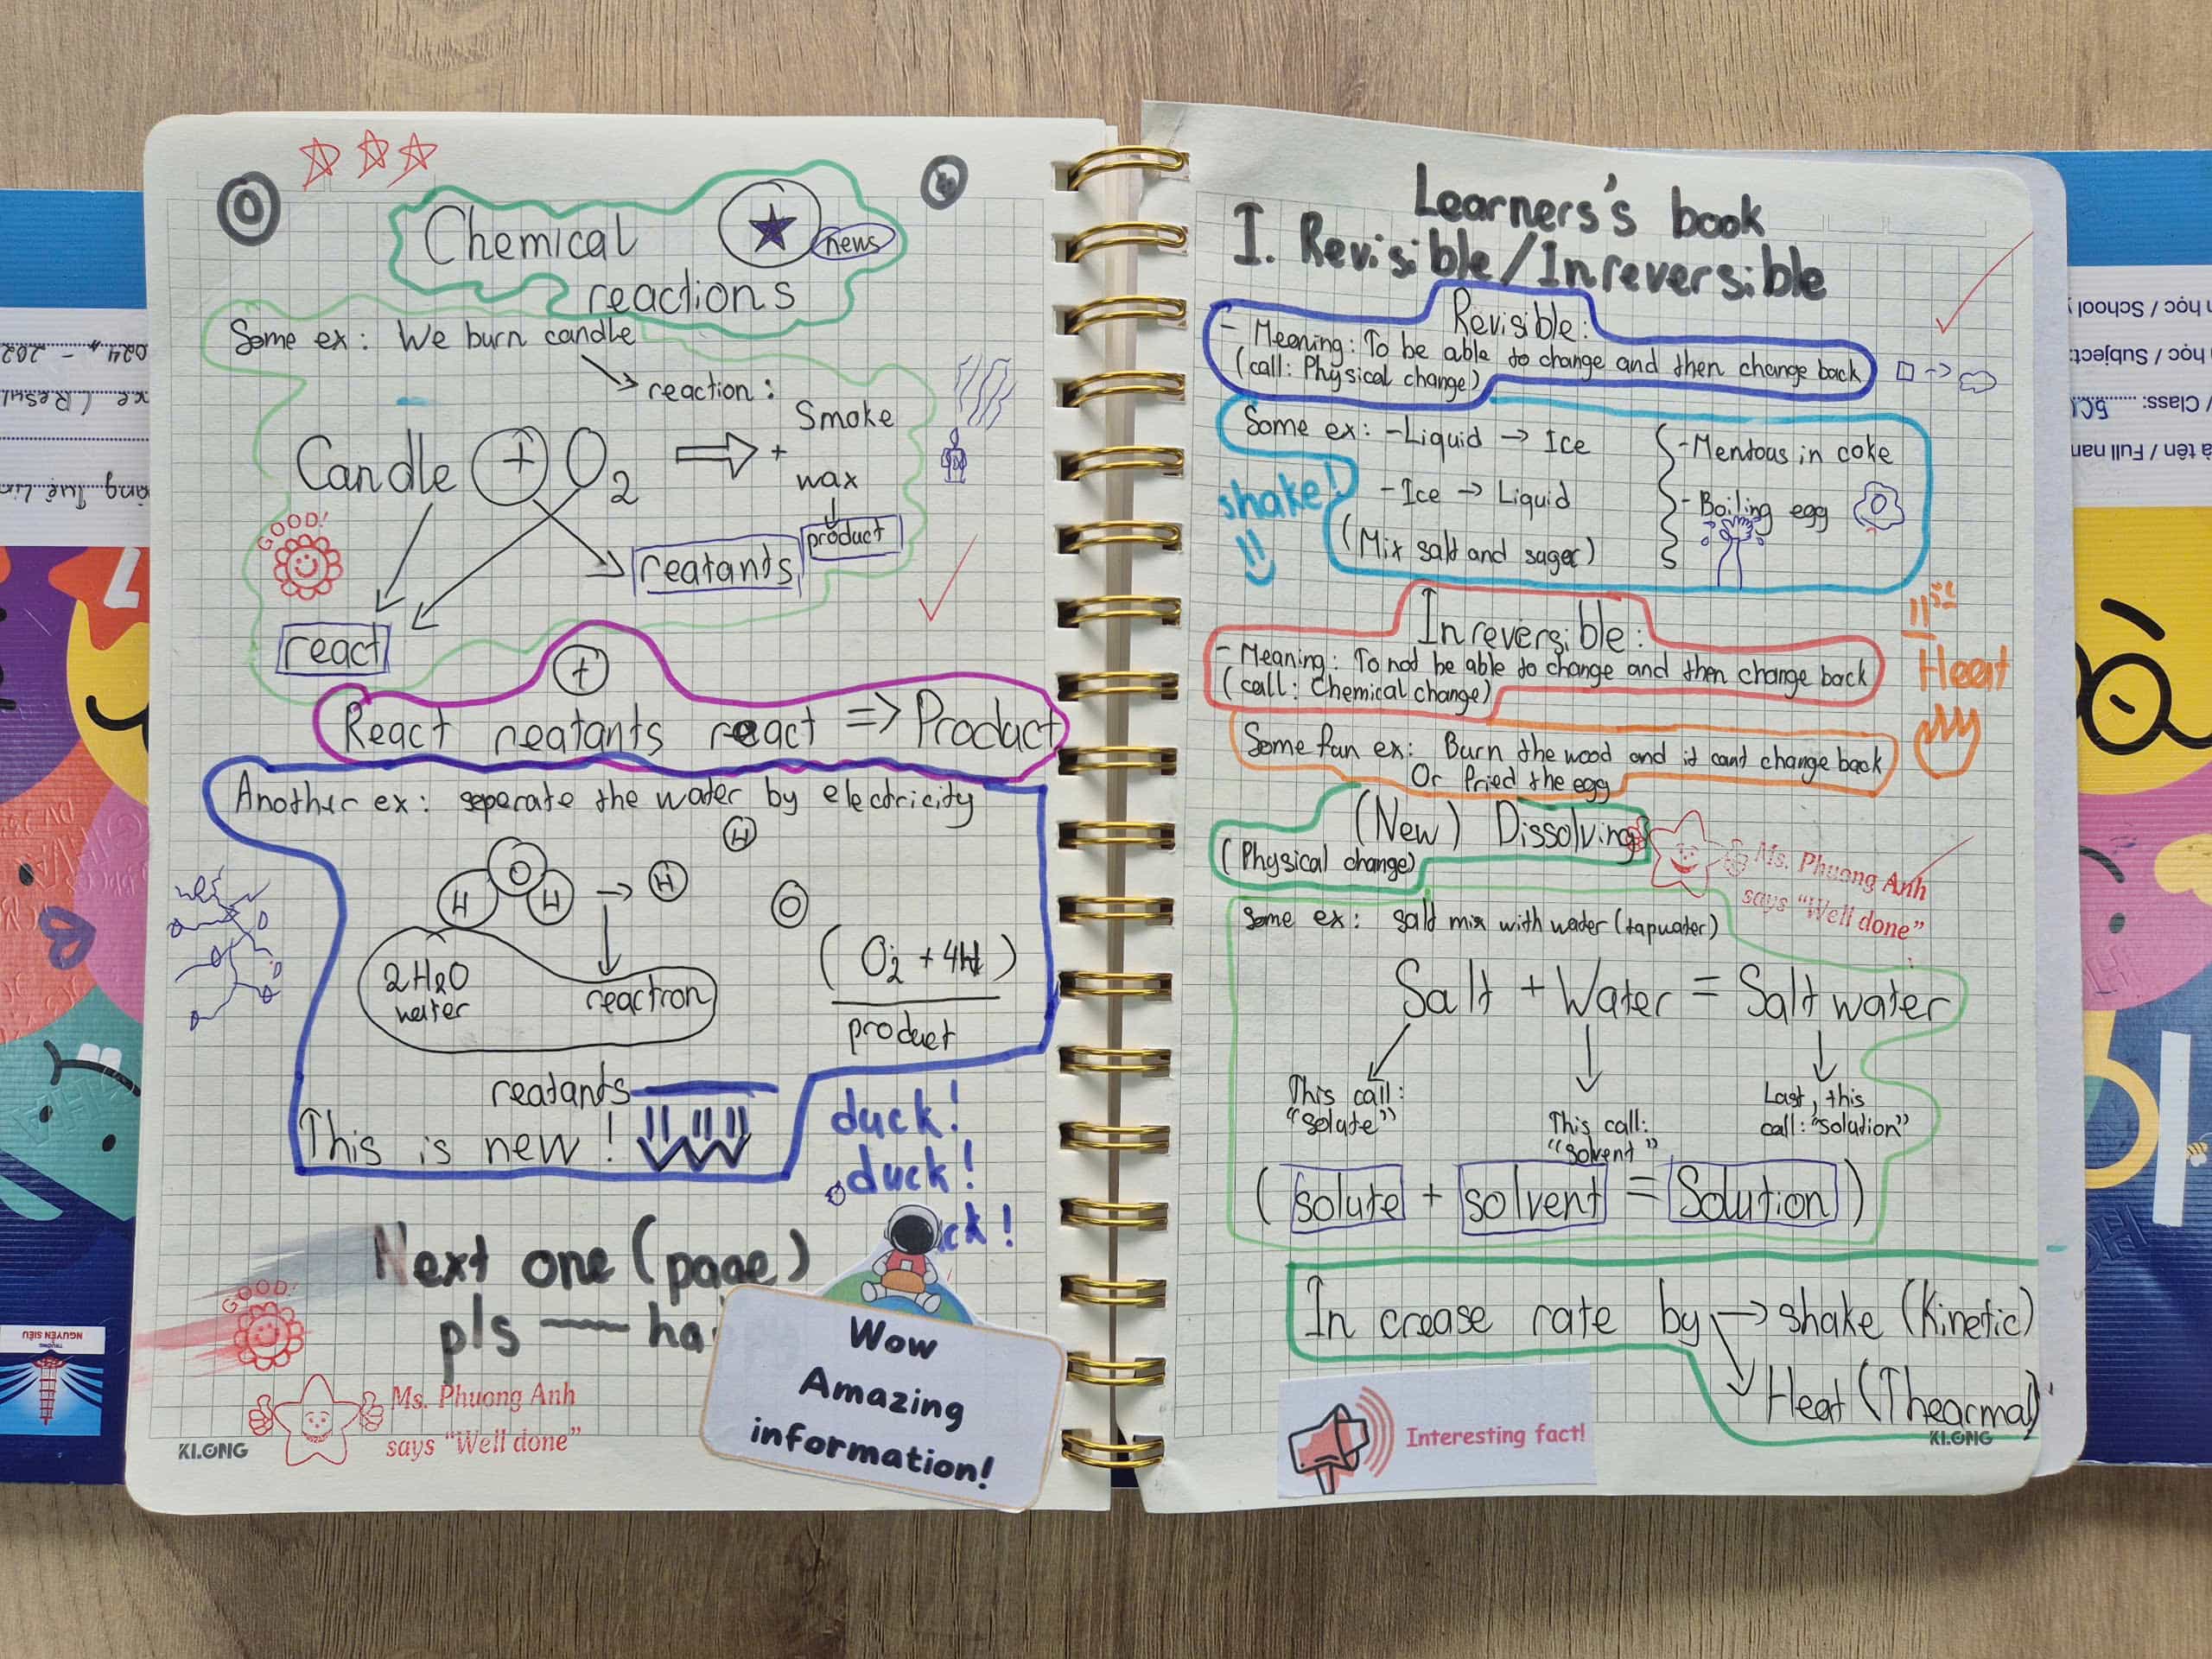 Chemical
news
reactions
Some ex: We burn candle
reaction:
Smoke
Candle + O2
+
wax
product
GOOD!
reatants
react
+
React reatants react => Product
Another ex: seperate the water by electricity
H
O
H H → H
O
2H2O
water
reaction
(O2 + 4H)
product
reatants
This is new!
duck!
duck!
ck!
Next one (page)
pls
GOOD!
Wow
Amazing
information!
Ms. Phuong Anh
says "Well done"
KI.ONG
Learners's book
I. Revisible/Inreversible
Revisible:
- Meaning: To be able to change and then change back
(call: Physical change)
Some ex: -Liquid → Ice
- Mentoas in coke
shake!
-Ice → Liquid
- Boiling egg
(Mix salt and sager)
Inreversible:
- Meaning: To not be able to change and then change back
(call: Chemical change)
Heat
Some fun ex: Burn the wood and it cant change back
Or fried the egg
(New) Dissolving
(Physical change)
Ms. Phuong Anh
says "Well done"
Some ex: salt mix with water (tapwater)
Salt + Water = Salt water
This call:
"solute"
This call:
"solvent"
Last, this
call: "solution"
(solute + solvent = Solution)
In crease rate by → shake (Kinetic)
Heat (Thearmal)
Interesting fact!
KI.ONG
TRƯỜNG
NGUYỄN SIÊU